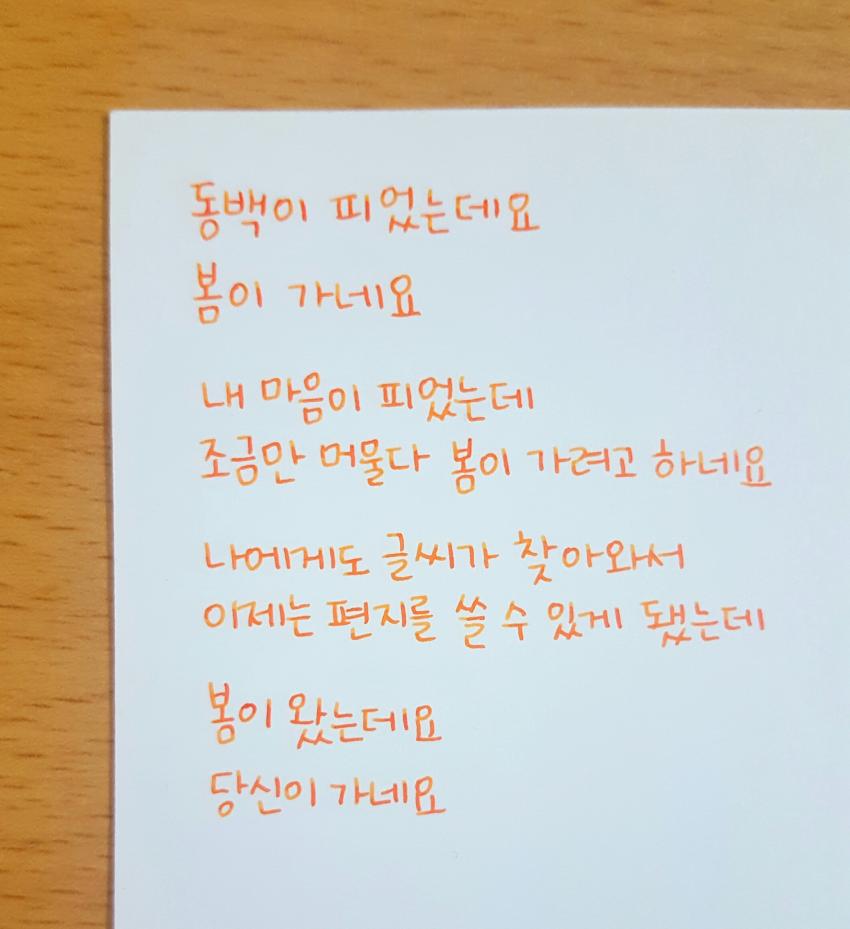 동백이 피었는데요
봄이 가네요
내 마음이 피었는데
조금만 머물다 봄이 가려고 하네요
나에게도 글씨가 찾아와서
이제는 편지를 쓸 수 있게 됐는데
봄이 왔는데요
당신이 가네요